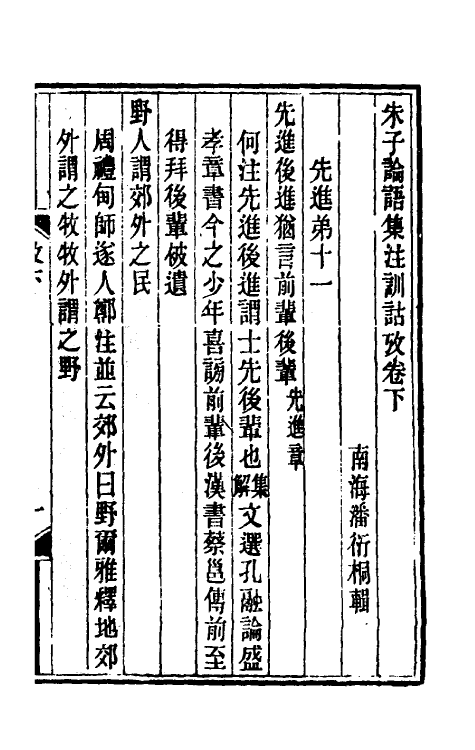 朱子論語集注訓詁攷卷下
南海潘衍桐輯
先進弟十一
先進後進猶言前輩後輩先進章
何注先進後進謂士先後輩也集解文選孔融論盛
孝章書今之少年喜謗前輩後漢書蔡邕傳前至
得拜後輩被遺
野人謂郊外之民
周禮甸師遂人鄭注並云郊外曰野爾雅釋地郊
外謂之牧牧外謂之野
攷下
一